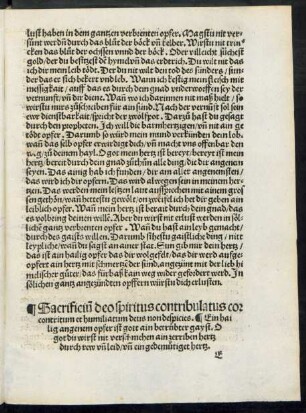 lust haben in dem gantzen verbienten opfer. Magstu nit ver
sünt werdñ durch das blůt der böck vñ kelber. Wirstu nit trin
cken das blůt der ochssen vnnd der böck. Oder villeicht sůchest
gold/der du besitzest dē hymel vñ das erdtrich. Du wilt nit das
ich dir mein leib tödt. Der du nit wilt den tod des sünders/sun
der das er sich bekert vnd leb. Wann ich kestig mein fleysch mit
messigkait/auff das es durch dein gnad vnderworffen sey der
vernunft/vñ dir diene. Wañ wo ich darinnen nit maß hielt/so
wirstu mirs zůschreiben für ain sünd. Nach der vernunft sol sein
ewr dienstbarkait/spricht der zwölfpot. Darzů hast du gesagt
durch den propheten. Ich will die barmhertzigen/vñ nit ain ge
tödt opfer. Darumb so würd mein mund verkünden dein lob.
wañ das selb opfer erwirdigt dich/vñ macht vns offenbar den
weg/zů deinem hayl. O got mein hertz ist berayt/berayt ist mein
hertz/berait durch dein gnad zůthůn alle ding/die dir angenem
seyen. Das ainig hab ich funden/dir am aller angenemsten/
das wird ich dir opfern. Das wird alwegen sein in meinem her
tzen. Das werden mein leftzen laut außsprechen mit ainem gros
sen gethön/
opffer. Wañ mein hertz ist berait durch dein gnad/das
es volbring deinen willē. Aber du wirst nit erlust werden in söl
liche gantz verbienten opfer. Wañ du hast ain leyb gemacht/
durch des gaists willen. Darumb sůchestu gaistliche ding/nit
leypliche/wañ du sagst an ainer stat. Sun gib mir dein hertz/
das ist ain hailig opfer das dir wolgefelt/das dir werd aufge
opfert ain hertz mit schmertzē der sünd/angezünt mit der lieb hi
mlischer gůter/das fürbaß kain weg wider gefordert werd. In
sölichen gantz angezündten opffern würstu dich erlusten.
¶ Sacrificiū deo spiritus contribulatus cor
contritum et humiliatum deus non despicies. ¶ Ein hai
lig angenem opfer ist gott ain betrübter gayst. O
got du wirst nit verschmehen ain zerriben hertz
durch rew vñ leid/vñ ein gedemütiget hertz.